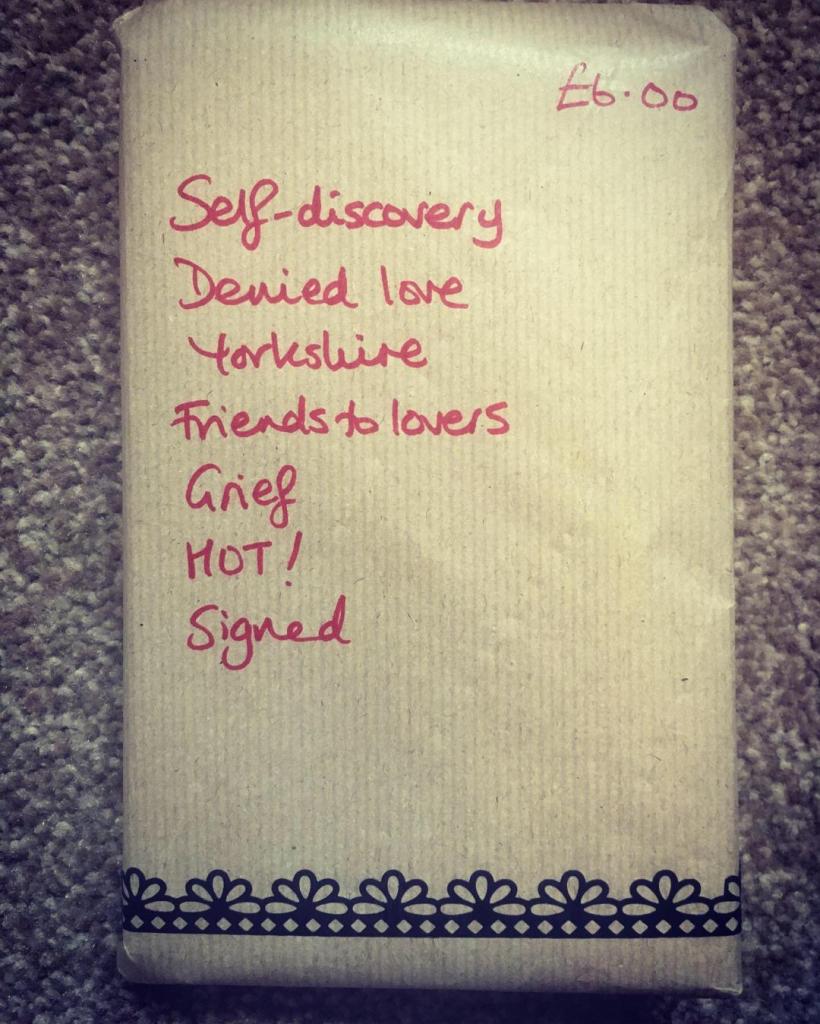 £6.00
Self-discovery
Denied love
Yorkshire
Friends to lovers
Grief
HOT!
Signed